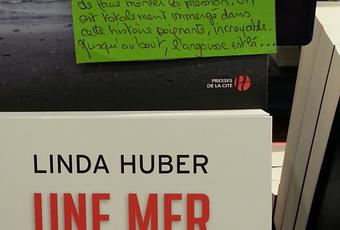 de faire monter la pression, on
est totalement immergé dans
cette histoire poignante, incroyable.
Jusqu'au bout, l'angoisse est là...
PRESSES
DE LA CITÉ
LINDA HUBER
UNE MER